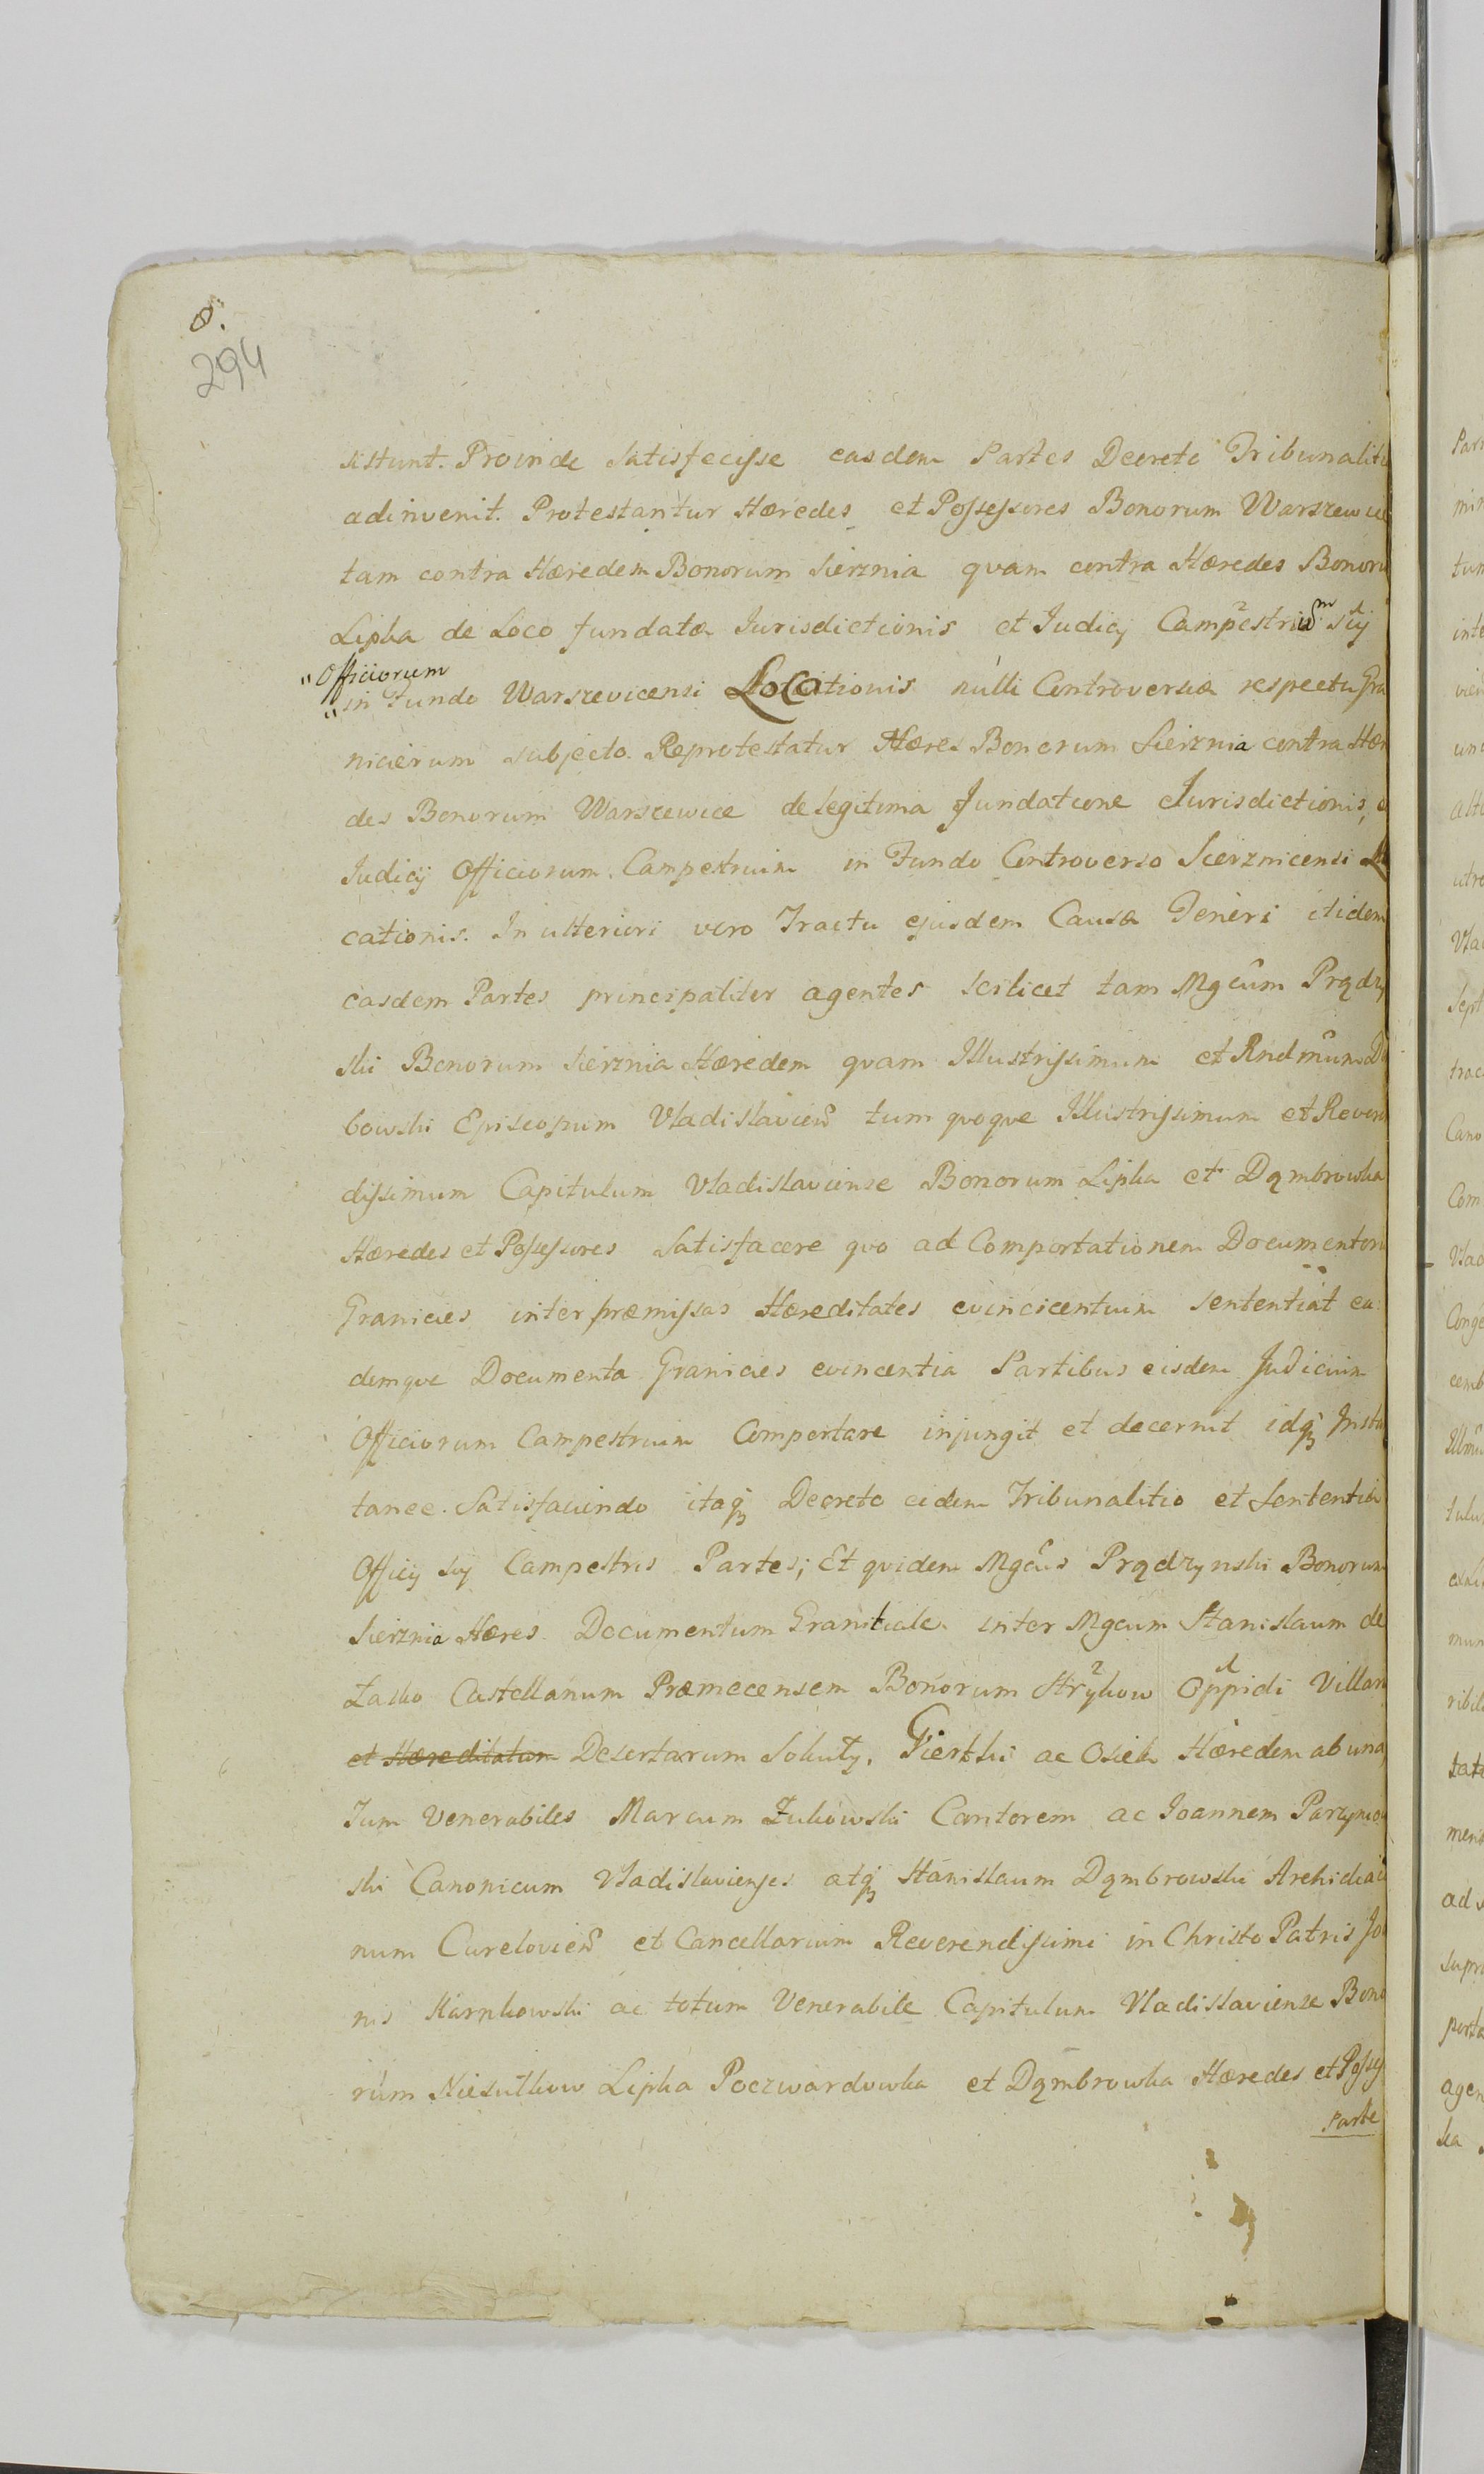 8.
294
sistunt. Proinde Satisfecisse easdem Partes Decreto Tribunaliti
adinvenit. Protestantur Hæredes et Possessores Bonorum Warszewice
tam contra Hæredem Bonorum Sierznia qvam contra Hæredes Bonoru
Lipka de Loco fundatæ Jurisdictionis et Judicij Campestrium sui
"Officiorum
"in Fundo Warszevicensi Locationis nulli Controversiæ respectu Gra
nicierum subjecto. Reprotestatur Hæres Bonorum Sierznia contra Hær
des Bonorum Warszewice de legitima fundatione Jurisdictionis,
Judicij Officiorum Campestrium in Fundo Controverso Sierznicensi
cationis. In ulteriori vero Tractu ejusdem Causæ Generi itidem
easdem Partes principaliter agentes scilicet tam Mgcum Prądzy
ski Bonorum Sierznia Hæredem qvam Illustrissimum et Rndmum D
bowski Episcopum Vladislavien tum qvoqve Illustrissimum et Rever
dissimum Capitulum Vladislaviense Bonorum Lipka et Dąmbrowka
Hæredes et Possessores Satisfacere qvo ad Comportationem Documentor
Granicies inter præmissas Hæreditates evincicentium sententiat ea
demqve Documenta Granicies evincentia Partibus eisdem Judicium
Officiorum Campestrium Comportare injungit et decernit idq3 Insta
tanee. Satisfaciendo itaq3 Decreto eidem Tribunalitio et Sententiæ
Officij sui Campestris Partes; Et qvidem Mgcus Prądzynski Bonorum
Sierznia Hæres Documentum Granitiale inter Mgcum Stanislaum de
Lasko Castellanum Præmecensem Bonorum Strykow Oppidi Villar
et Hæreditatum Desertarum Sokuty, Gierthi ac Osiek Hæredem ab una,
Tum Venerabiles Marcum Żukowski Cantorem ac Joannem Parzynow
ski Canonicum Vladislavienses atq3 Stanislaum Dąmbrowski Archidiac
num Cureloviens et Cancellarium Reverendissimi in Christo Patris Jo
nis Karnkowski ac totum Venerabile Capitulum Vladislaviense Bono
rum Niesułkow Lipka Poczwardowka et Dąmbrowka Hæredes et Possess
Parte